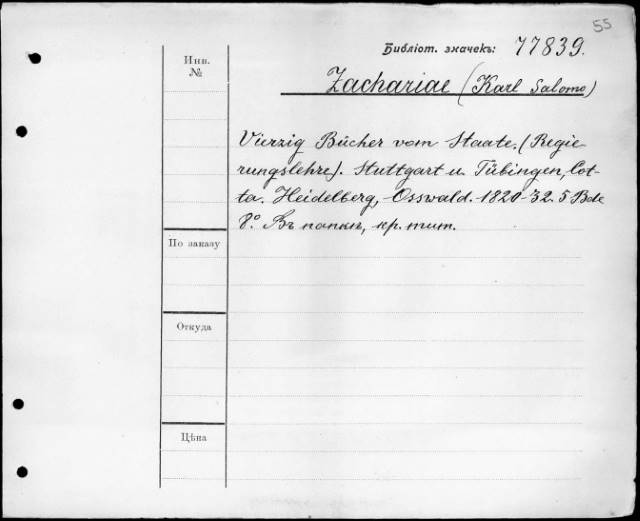 55
Библіот. значекъ: 77839.
Инв.
№
Zachariae (Karl Salomo)
Vierzig Bücher vom Staate. (Regie-
rungslehre). Stuttgart u. Tübingen, Cot-
ta. Heidelberg, Osswald. 1820-32. 5 Bde
8.° Въ папкѣ, кр. тит.
По заказу
Откуда
Цѣна